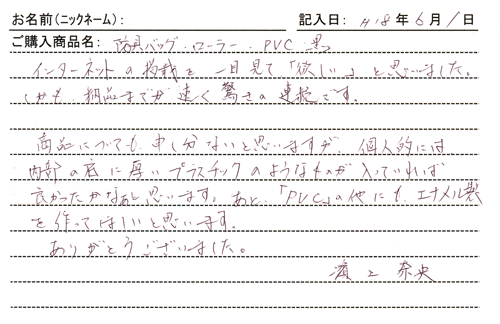 お名前(ニックネーム): 記入日: H18年6月1日
ご購入商品名: 防具バッグ・ローラー・PVC・黒
インターネットの掲載を一目見て「欲しい」と思いました。
しかも、納品までが速く驚きの連続です。
商品についても、申し分ないと思いますが、個人的には
内部の底に厚いプラスチックのようなものが入っていれば
良かったかなぁと思います。あと、「PVC」の他にも、エナメル製
を作ってほしいと思います。
ありがとうございました。
濱上 奈央